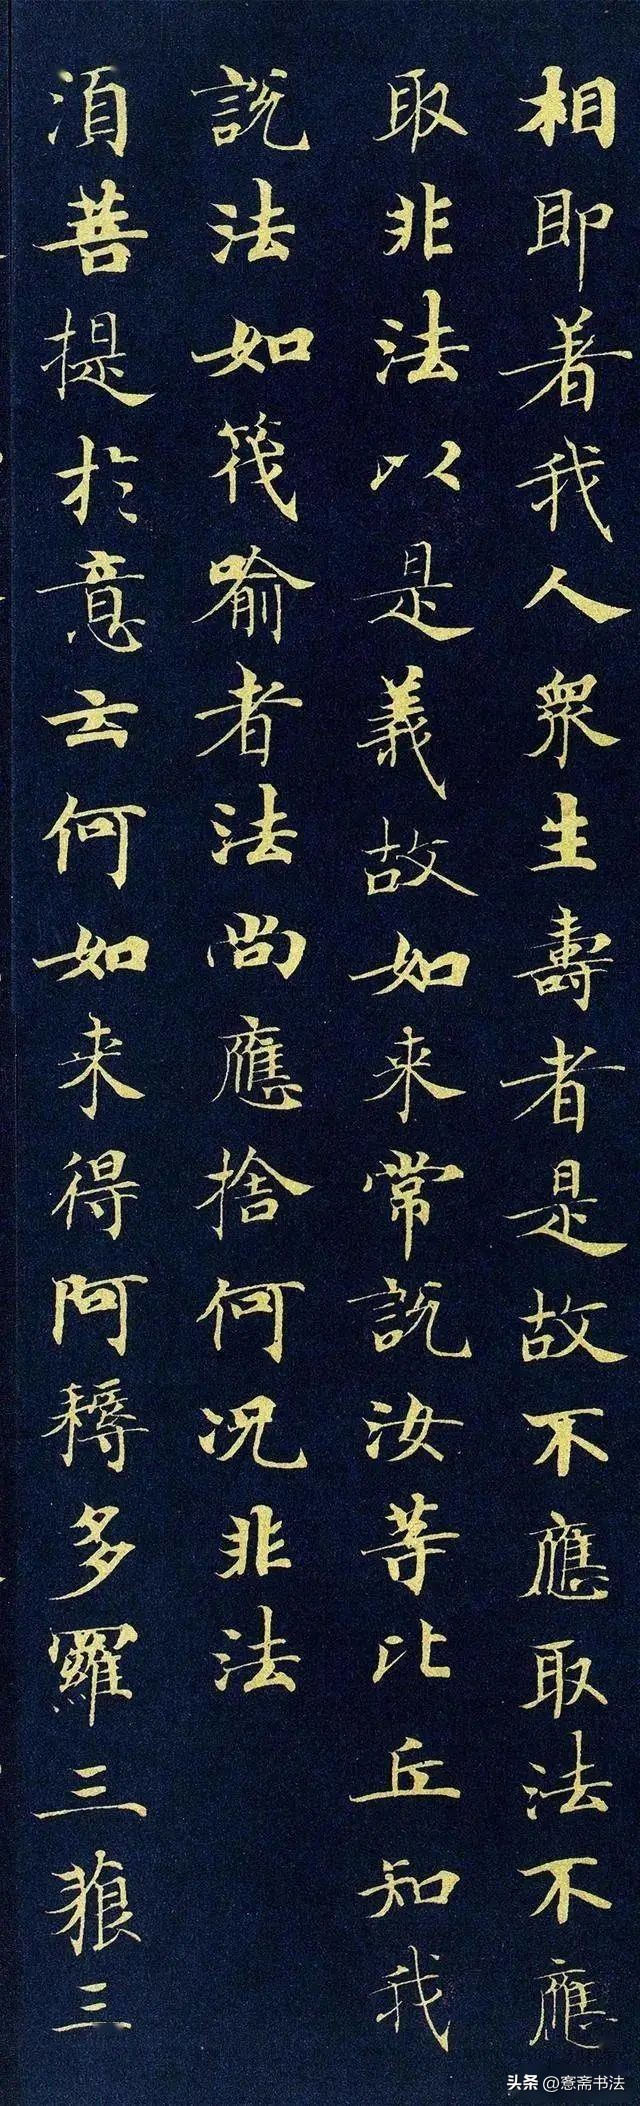 相即著我人衆生壽者是故不應取法不應
取非法以是義故如来常説汝等比丘知我
説法如筏喻者法尚應捨何况非法
湏菩提於意云何如来得阿耨多羅三藐三
头条 @惷斋书法